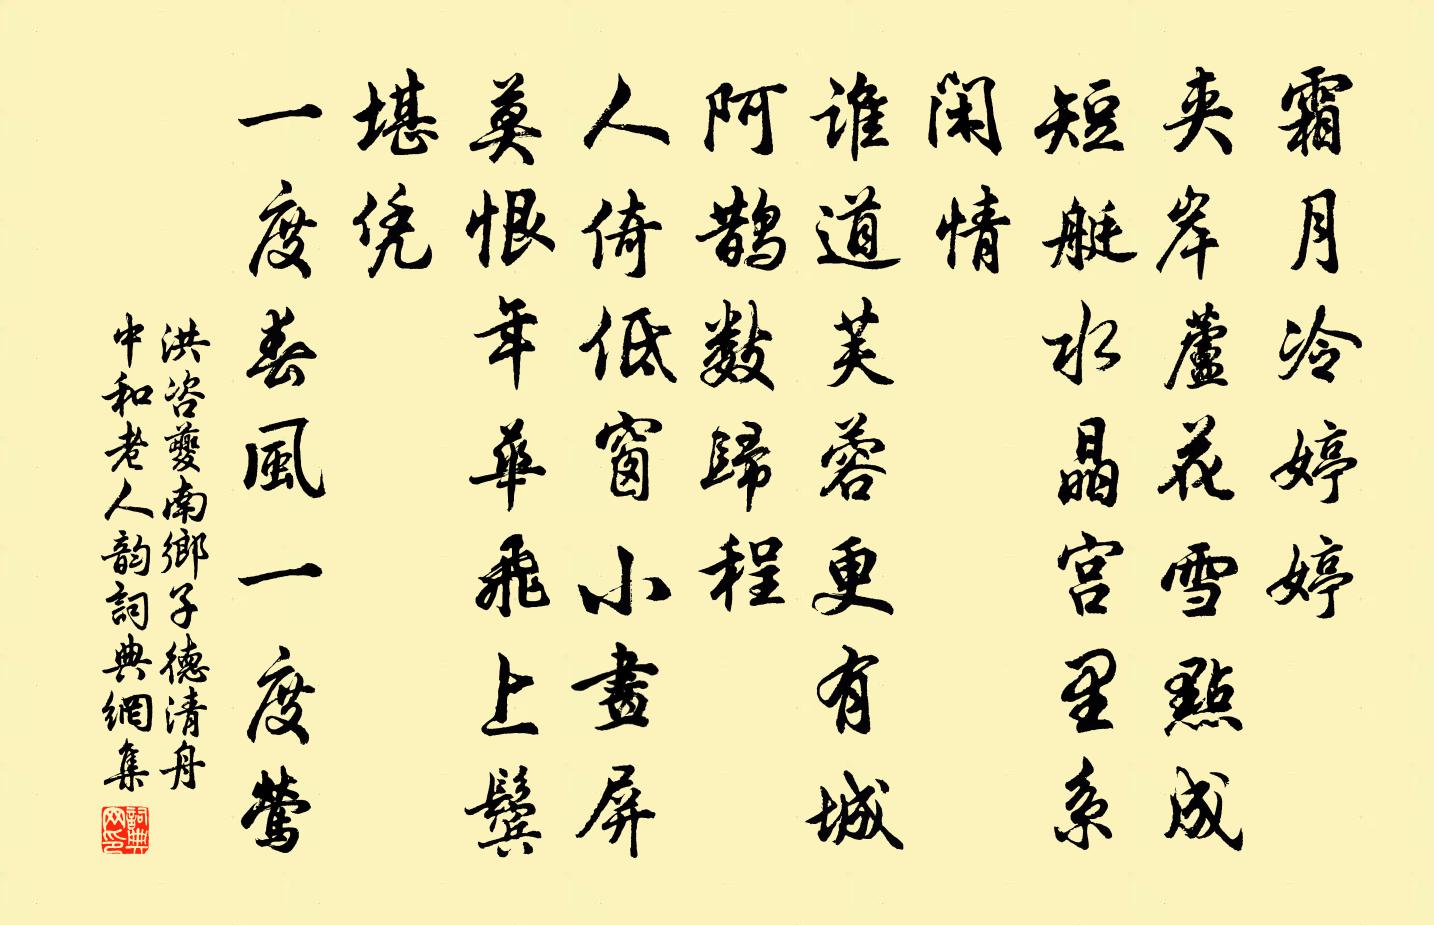 霜月冷婷婷
夹岸蘆花雪點成
短艇水晶宫里系
闲情
谁道芙蓉更有城
阿鹊數歸程
人倚低窗小畫屏
莫恨年华飛上鬓
堪凭
一度春風一度莺
洪咨夔南鄉子德清舟
中和老人韵詞典網集
詞典网印